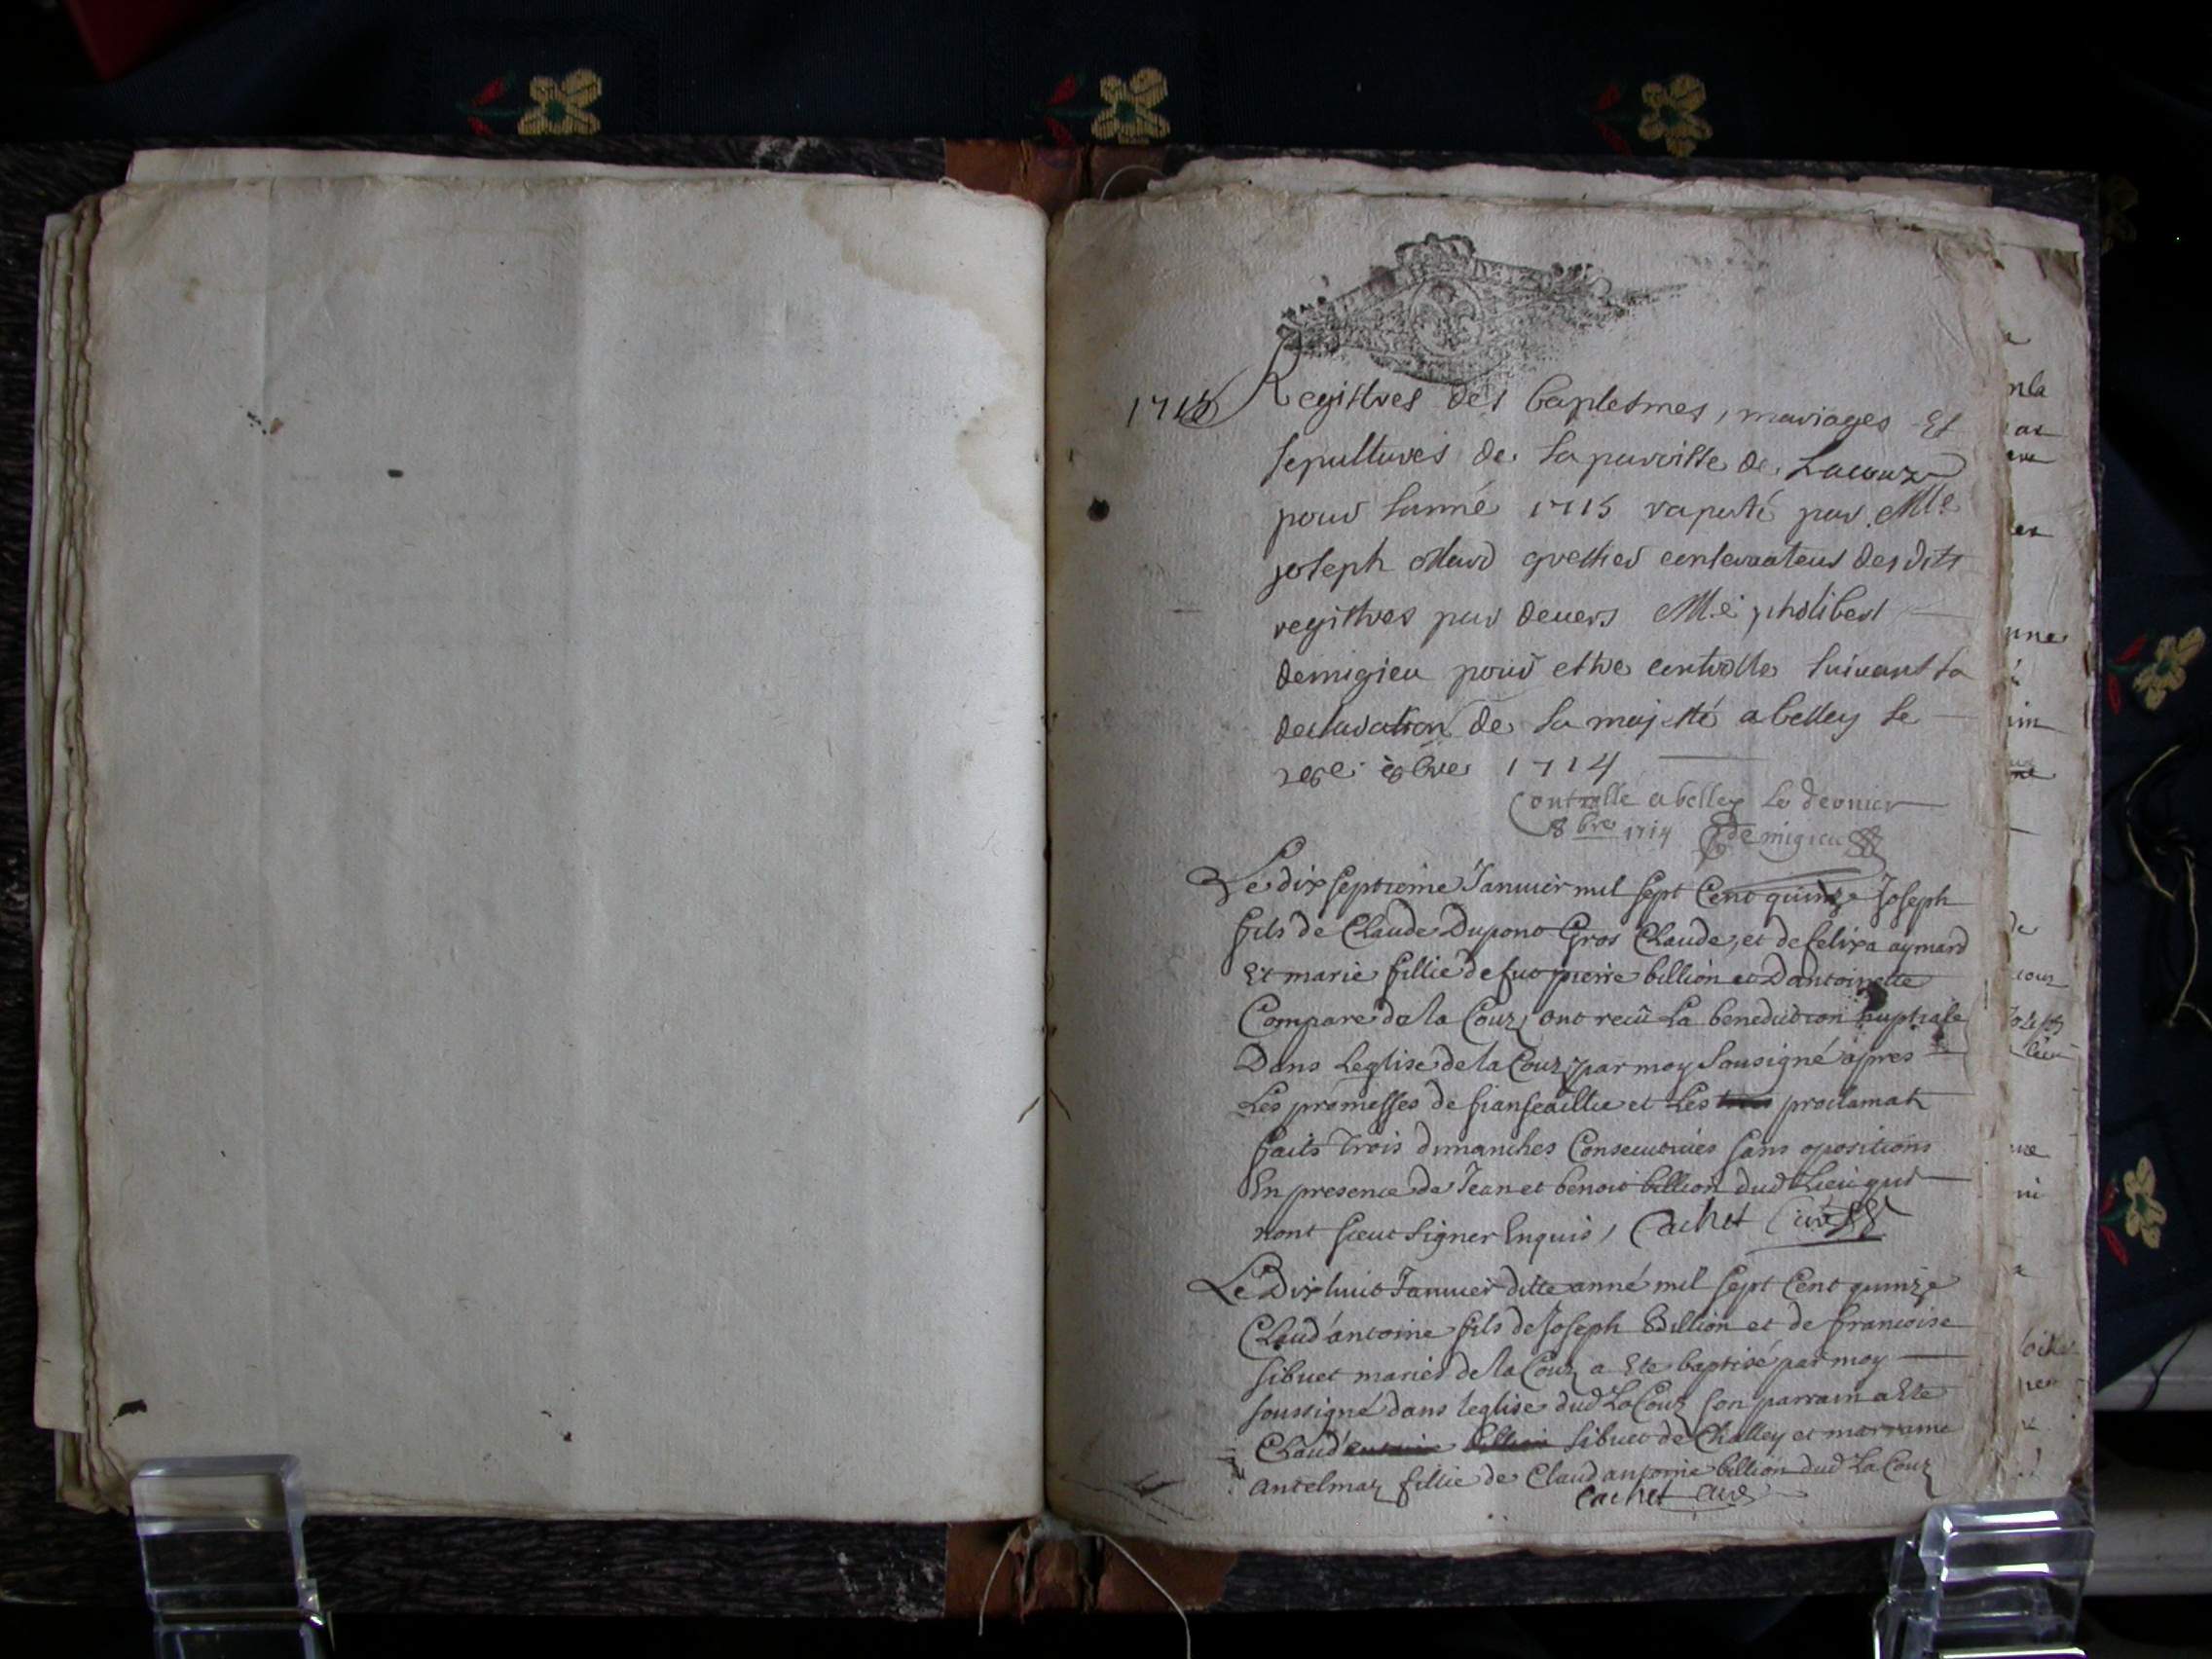 1715
Registres des baptesmes, mariages Et
sepultures de la paroisse de Lacouz
pour lanné 1715 par Me
joseph greffier conservateur desdits
registres par devers Me philibert
demigieu pour estre controlle suivant la
declaration de sa majesté a belley le
1714
Controllé a belley le dernier
8bre 1714 Demigieu
Le dix septieme Januier mil sept Cent quinze Joseph
fils de Claude Dupont Gros Claude, et de felixa aymard
Et marie fillie de fut pierre billion et Dantoinette
Compare de la Couz, ont recû La benediction nuptiale
Dans Leglise de la Couz, par moy Sousigné apres
Les promesses de fianseaillie et Les proclamat
faits Trois dimanches Consecutiues sans opositions
En presence de Jean et benoit billion dud Lieu qui
nont sceut signer Enquis, Cachet Curé
Le Dixhuit Januier ditte anné mil sept Cent quinze
Claud'antoine fils de Joseph Billion et de francoise
sibuet mariés de la Couz a Ete baptisé par moy
soussigné dans leglise dud LaCouz son parrain a Ete
Claud' sibuet de Challey et marraine
antelmaz fillie de Claud antoine billion dud La Couz
Cachet Curé